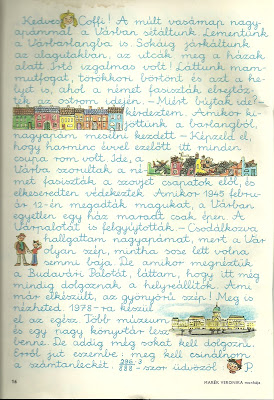 Kedves Öcsi! A múlt vasárnap nagy-
apámmal a Várban sétáltunk. Lementünk
a Várbarlangba is. Sokáig járkáltunk
az alagutakban, az utcák meg a házak
alatt. Irtó izgalmas volt! Láttunk mam-
mutfogat, törökkori börtönt és azt a he-
lyet is, ahol a német fasiszták elrejtőz-
tek az ostrom idején. – Miért bújtak ide?
kérdeztem. Amikor ki-
jutottunk a barlangból,
nagyapám mesélni kezdett – Képzeld el,
hogy harminc évvel ezelőtt itt minden
csupa rom volt. Ide, a
Várba szorultak a né-
met fasiszták a szovjet csapatok elől, és
elkeseredetten védekeztek. Amikor 1945 febru-
ár 12-én megadták magukat, a Várban
egyetlen egy ház maradt csak épen. A
Várpalotát is felgyújtották. – Csodálkozva
hallgattam nagyapámat, mert a Vár
olyan szép, mintha sose lett volna
semmi baja. De amikor megnéztük
a Budavári Palotát, láttam, hogy itt még
mindig dolgoznak a helyreállítók. Ami
már elkészült, az gyönyörű szép! Meg is
nézheted. 1978-ra készül
el az egész. Több múzeum
és egy nagy könyvtár lesz
benne. De addig még sokat kell dolgozni.
Erről jut eszembe: meg kell csinálnom
a számtanleckét. 296·3
888-szor üdvözöl P
16
MARÉK VERONIKA munkája